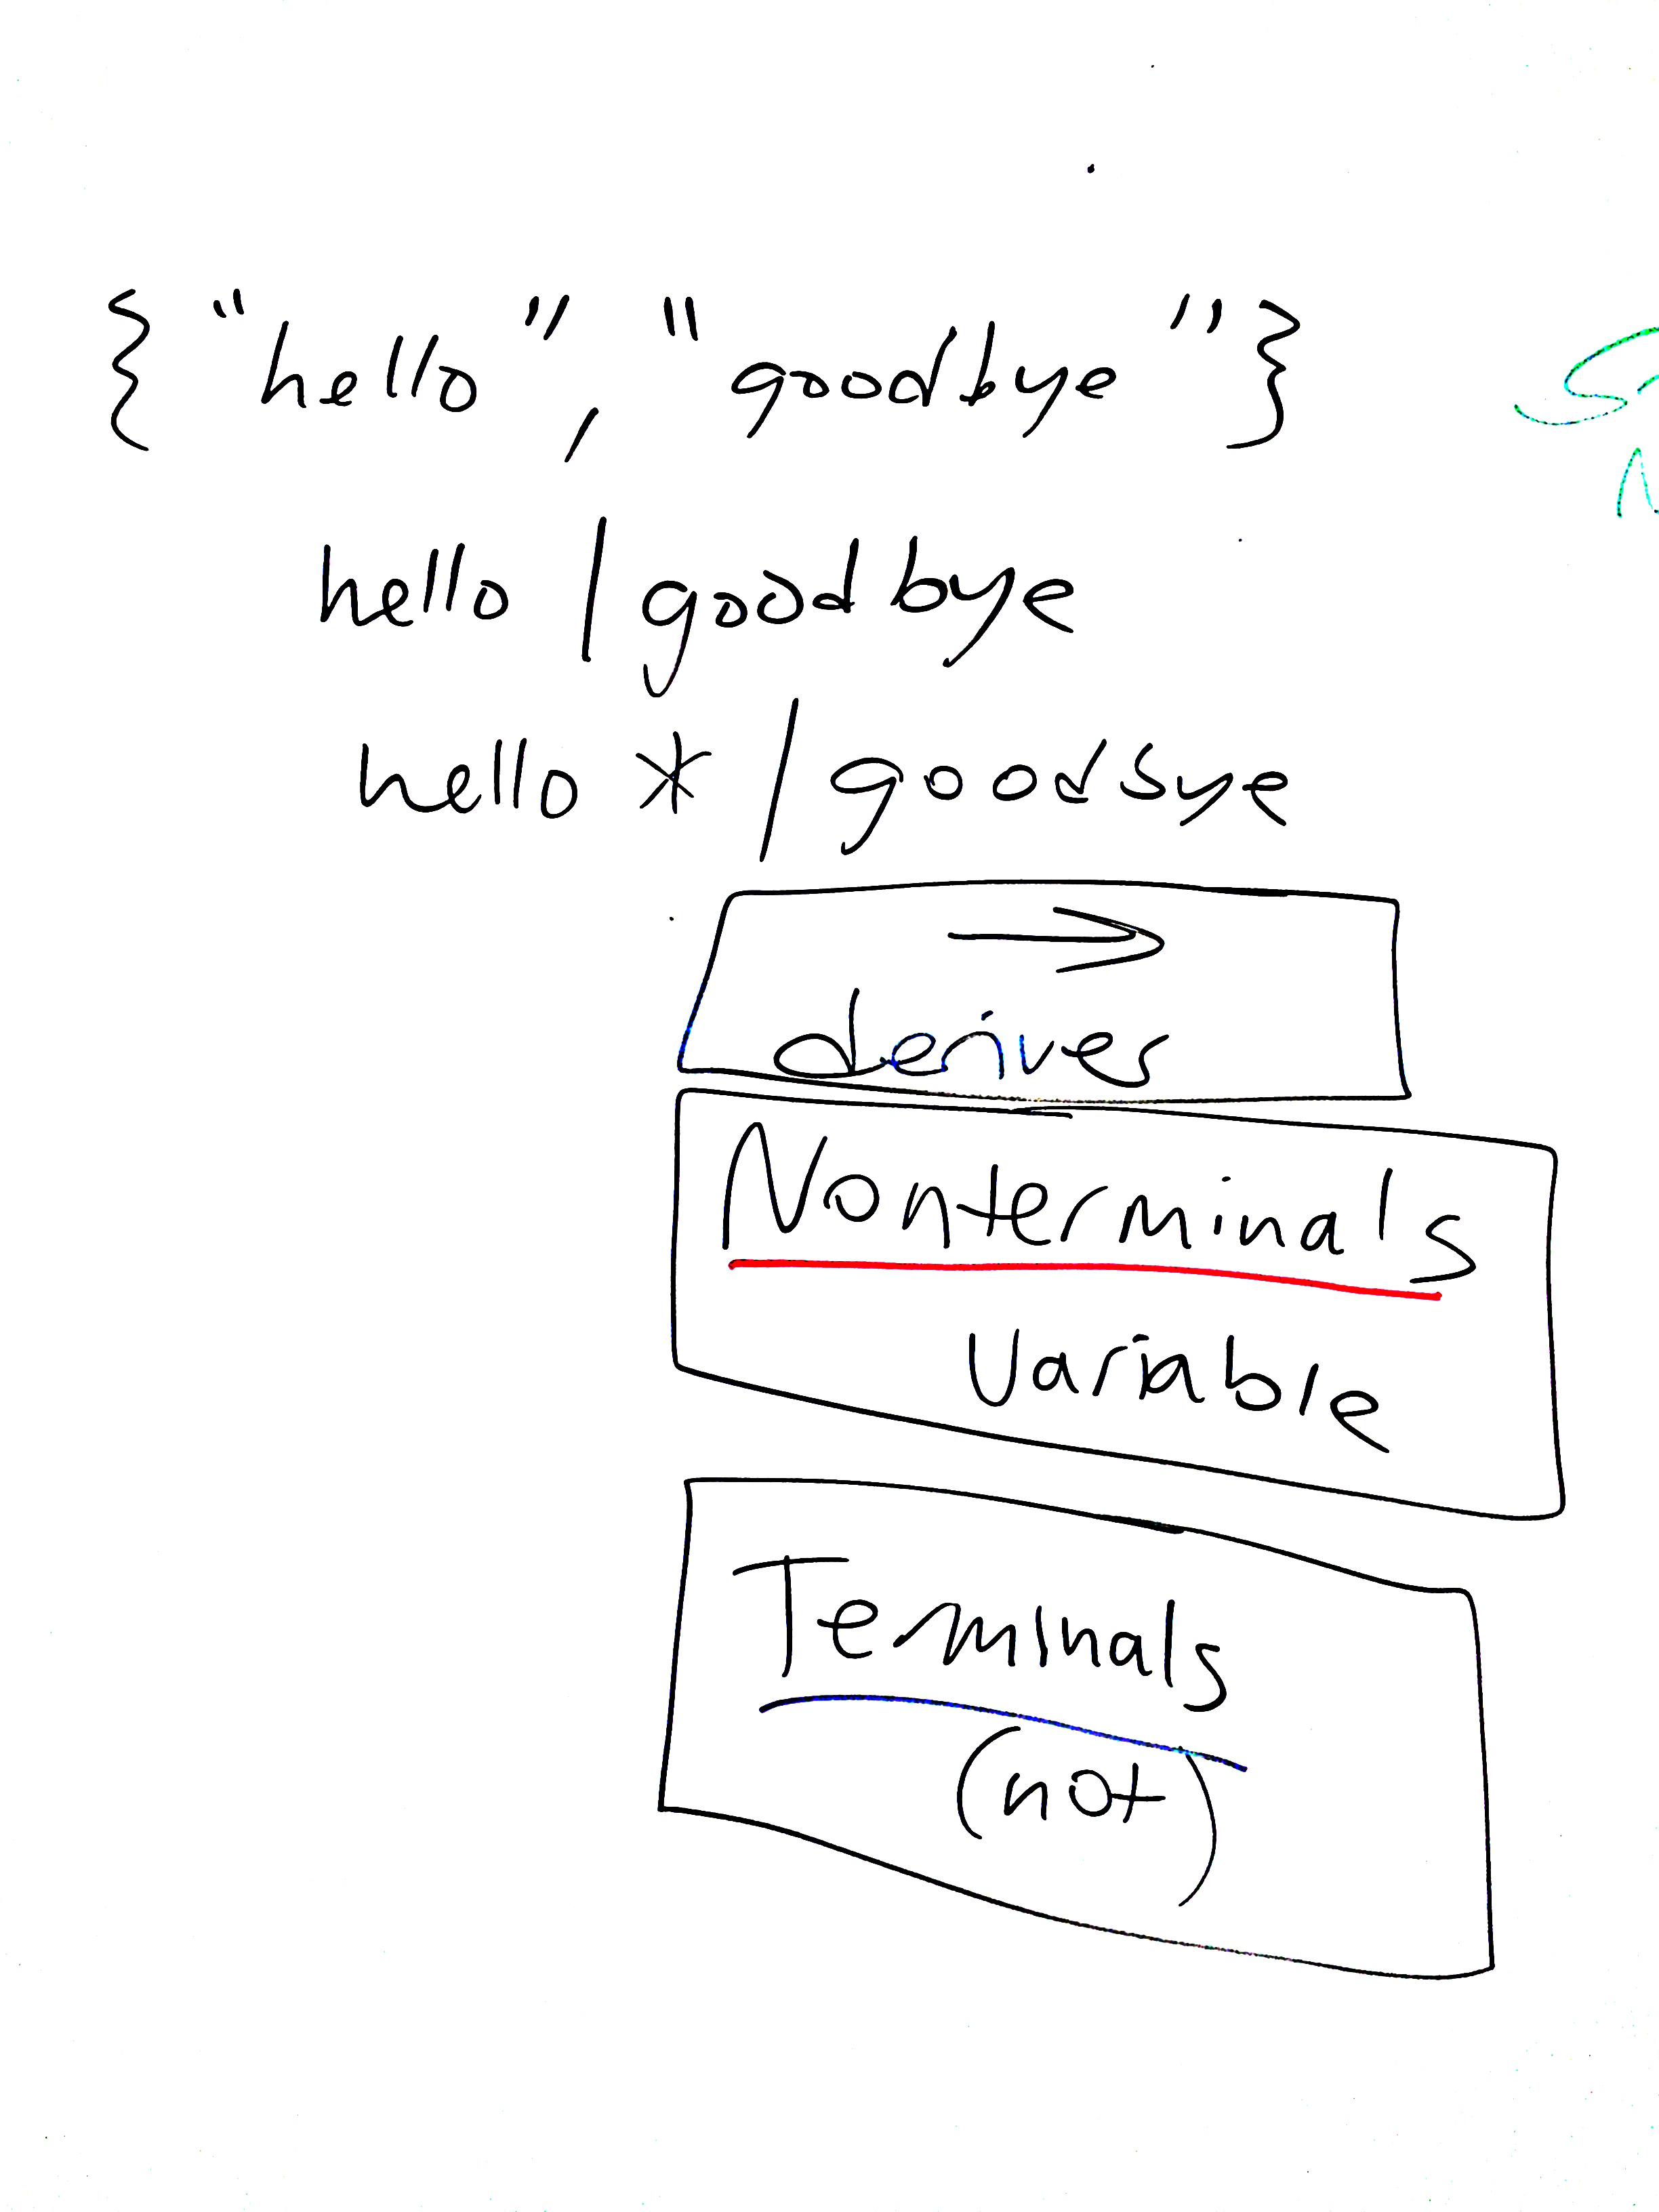 { "hello", "goodbye" }
hello | goodbye
hello * | goodbye
→
derives
Nonterminals
Variable
Teminals
(not)